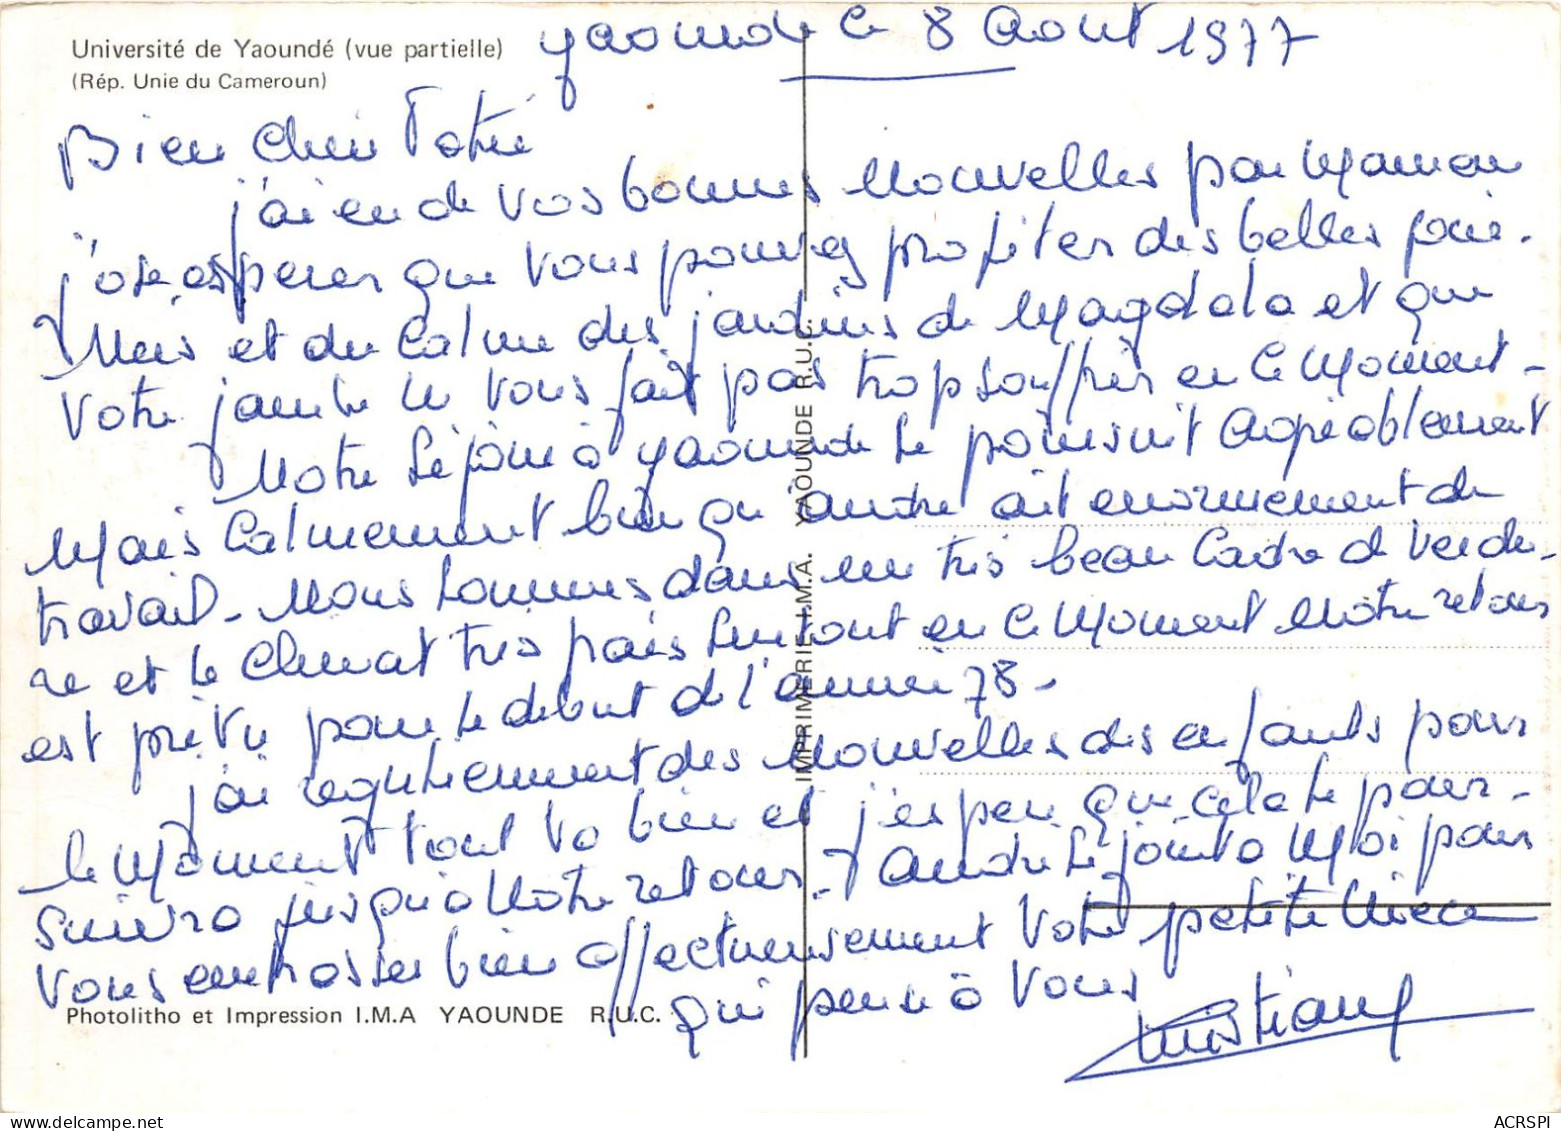 Université de Yaoundé (vue partielle)
(Rép. Unie du Cameroun)
Yaounde le 8 Aout 1977
Bien Chère Tatie
j'ai eu de vos bonnes nouvelles par Maman
j'ose espérer que vous pouvez profiter des belles jour-
nées et du calme des jardins de Magdala et que
votre jambe ne vous fait pas trop souffrir en ce moment -
Notre séjour à Yaounde se poursuit agréablement
Mais calmement bien qu'André ait enormement de
travail - Nous sommes dans un très beau cadre de verdu-
re et le climat très frais surtout en ce moment notre retour
est prévu pour le debut de l'année 78 -
j'ai regulierement des nouvelles des enfants pour
le moment tout va bien et j'espere que cela se pour-
suivra jusqu'à notre retour - André se joint à Moi pour
vous embrasser bien affectueusement votre petite niece
qui pense à vous
Christiane
Photolitho et Impression I.M.A YAOUNDE R.U.C.
IMPRIMERIE I.M.A. YAOUNDE R.U.C.
ACRSPI